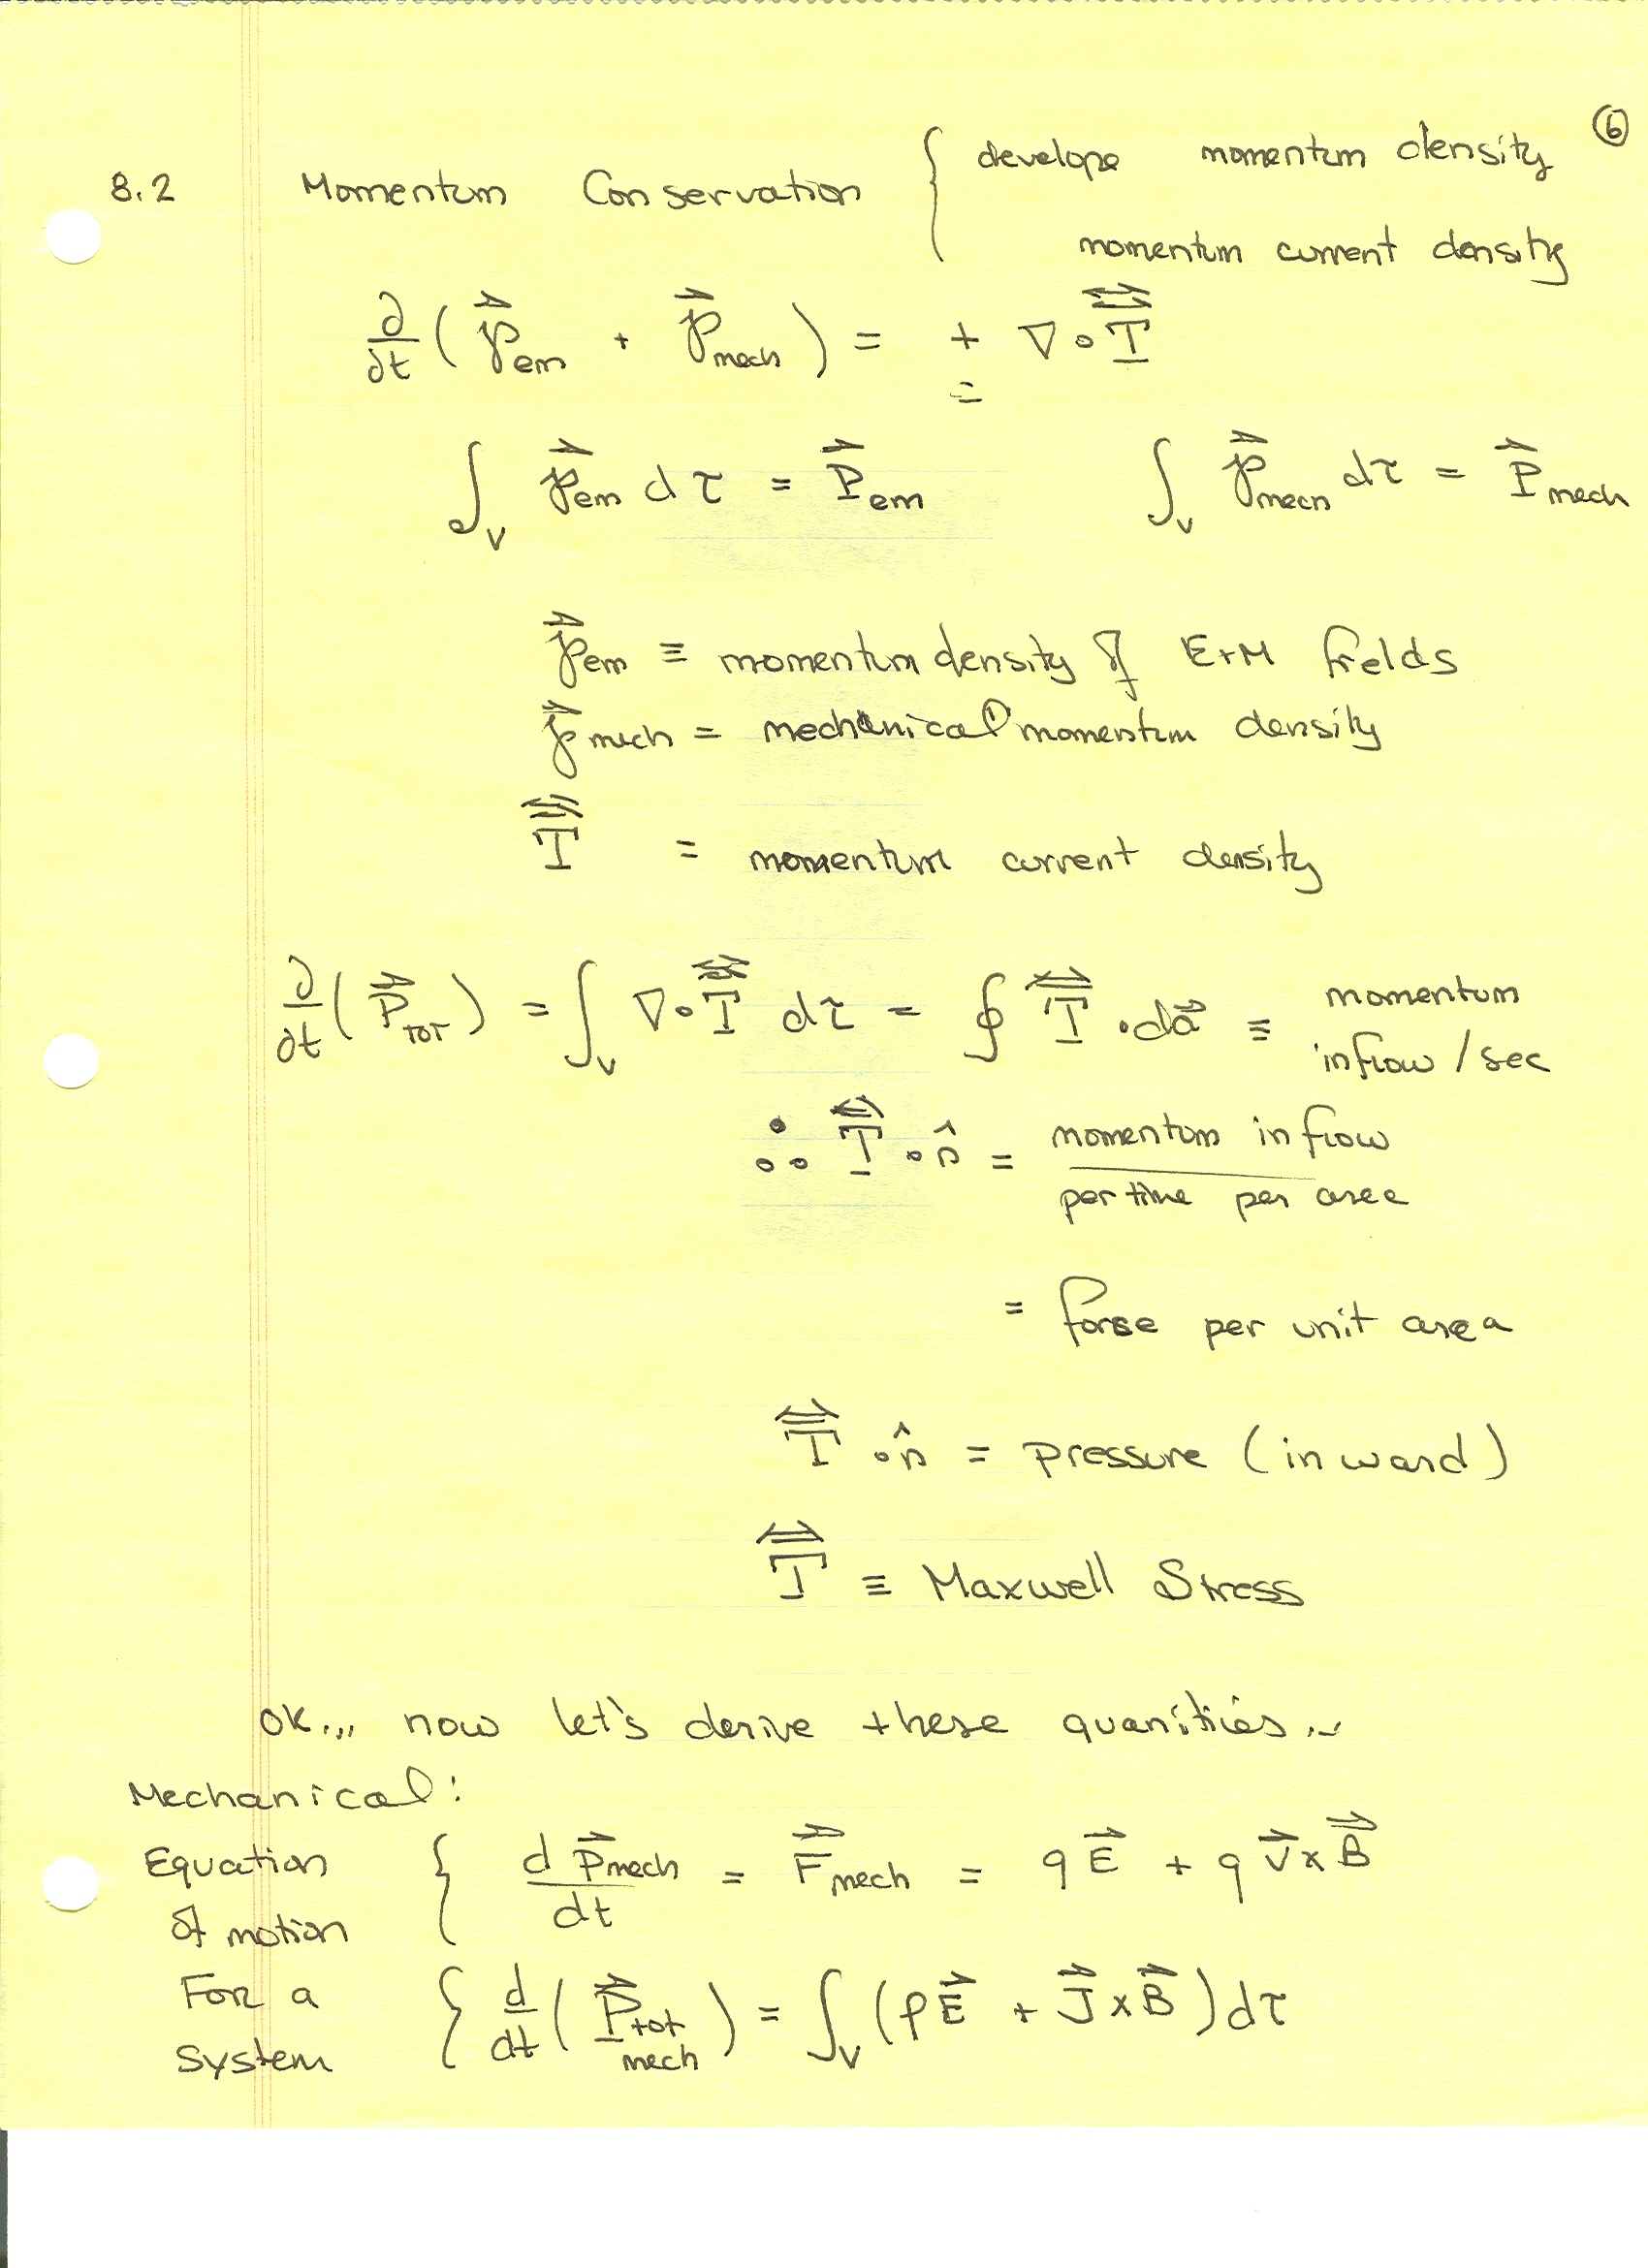 ⑥
8.2 Momentum Conservation { develope momentum density
momentum current density
∂/∂t ( ℘⃗em + ℘⃗mech ) = + ∇ ∘ T⃡
=
∫_V ℘⃗em dτ = P⃗em ∫_V ℘⃗mech dτ = P⃗mech
℘⃗em ≡ momentum density of E+M fields
℘⃗mech = mechanical momentum density
T⃡ = momentum current density
∂/∂t ( P⃗TOT ) = ∫_V ∇∘T⃡ dτ = ∮ T⃡ · da⃗ ≡ momentum
inflow / sec
∴ T⃡ ∘ n̂ = momentum inflow
per time per area
= forse per unit area
T⃡ ∘ n̂ = pressure (inward)
T⃡ ≡ Maxwell Stress
OK... now let's derive these quanities...
Mechanical:
Equation of motion { dP⃗mech/dt = F⃗mech = qE⃗ + q v⃗ x B⃗
For a system { d/dt ( P⃗tot mech ) = ∫_V (ρE⃗ + J⃗ x B⃗) dτ